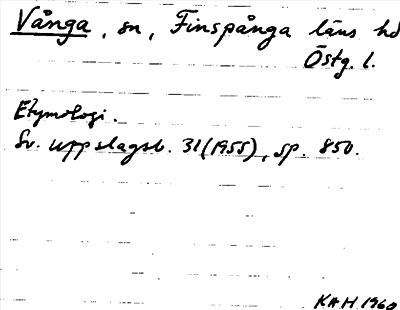 Vånga, sn, Finspånga läns hd
Östg. l.
Etymologi.
Sv. uppslagsb. 31(1955), sp. 850.
KAH 1960